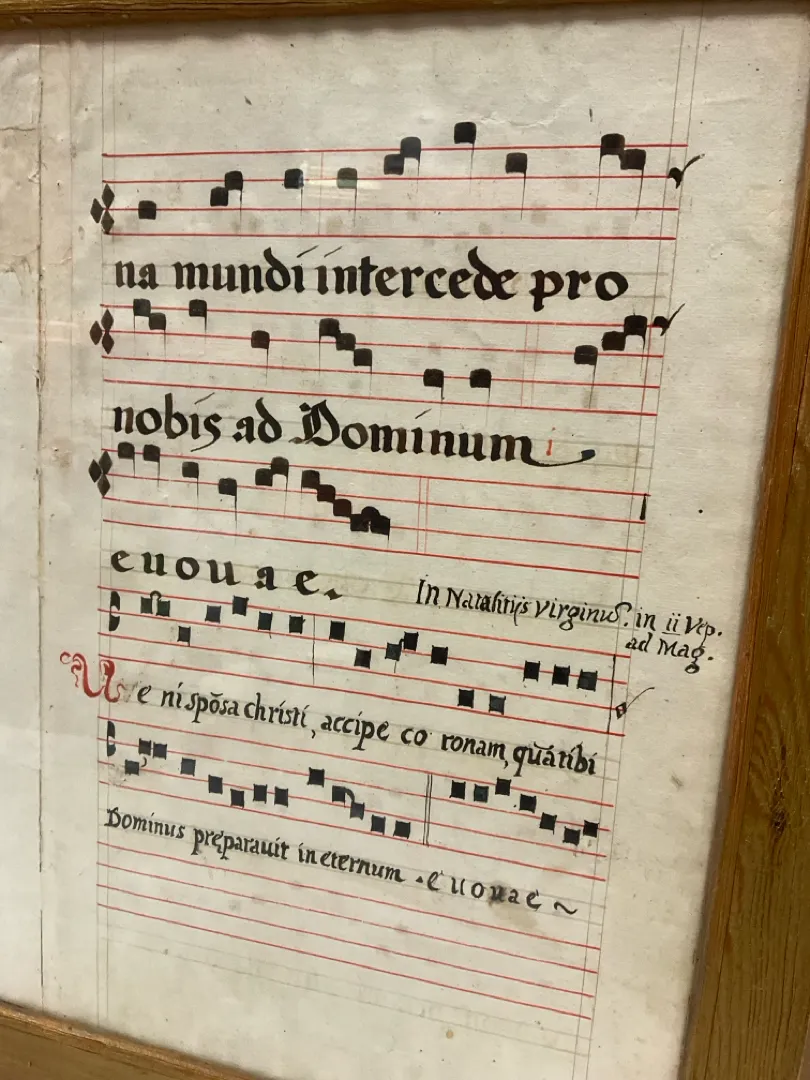 na mundi intercede pro
nobis ad Dominum
e u o u a e.
In Natalitijs virginū. in ii Vep.
ad Mag.
Ve ni spōsa christi, accipe co ronam, quā tibi
Dominus pręparauit in eternum . e u o u a e ~